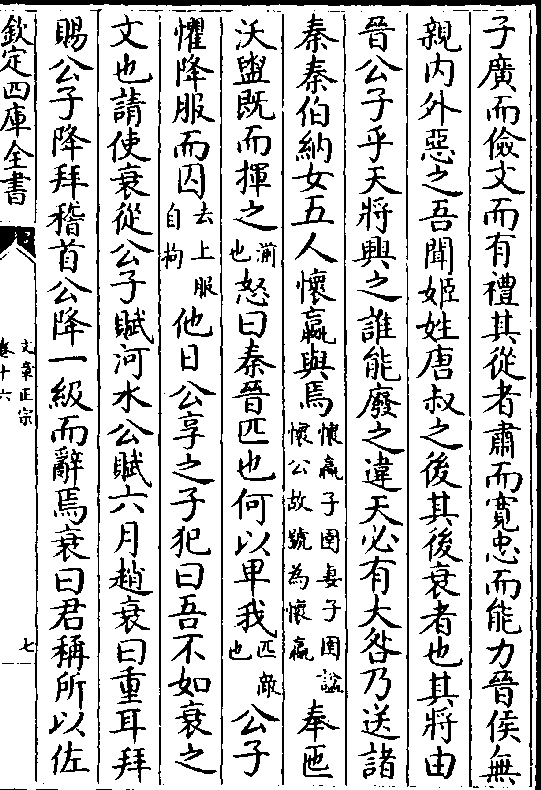 子廣而儉文而有禮其從者肅而寛忠而能力晉侯無
親内外惡之吾聞姬姓唐叔之後其後衰者也其將由
晉公子乎天將興之誰能廢之違天必有大咎乃送諸
秦秦伯納女五人懷嬴與焉懷嬴子圉妻子圉諡懷公故號為懷嬴奉匜
沃盥既而揮之湔也怒曰秦晉匹也何以卑我匹敵也公子
懼降服而囚去上服自拘他日公享之子犯曰吾不如衰之
文也請使衰從公子賦河水公賦六月趙衰曰重耳拜
賜公子降拜稽首公降一級而辭焉衰曰君稱所以佐
欽定四庫全書
文章正宗
卷十六
七